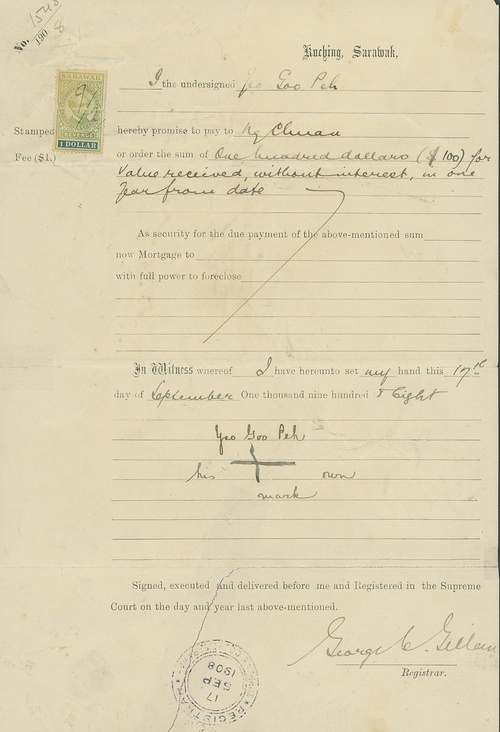 No. 1548
190 8
Kuching, Sarawak,
I the undersigned Yeo Goo Peh
SARAWAK
REVENUE
1 DOLLAR
Stamped
Fee ($1.)
hereby promise to pay to Ng Chuan
or order the sum of One hundred dollars ($ 100) for
Value received, without interest, in one
Year from date
As security for the due payment of the above-mentioned sum
now Mortgage to
with full power to foreclose
In Witness whereof I have hereunto set my hand this 17th
day of September One thousand nine hundred & Eight
Yeo Goo Peh
his own
mark
Signed, executed and delivered before me and Registered in the Supreme
Court on the day and year last above-mentioned.
George C. Gillan
Registrar.
17
SEP
1908